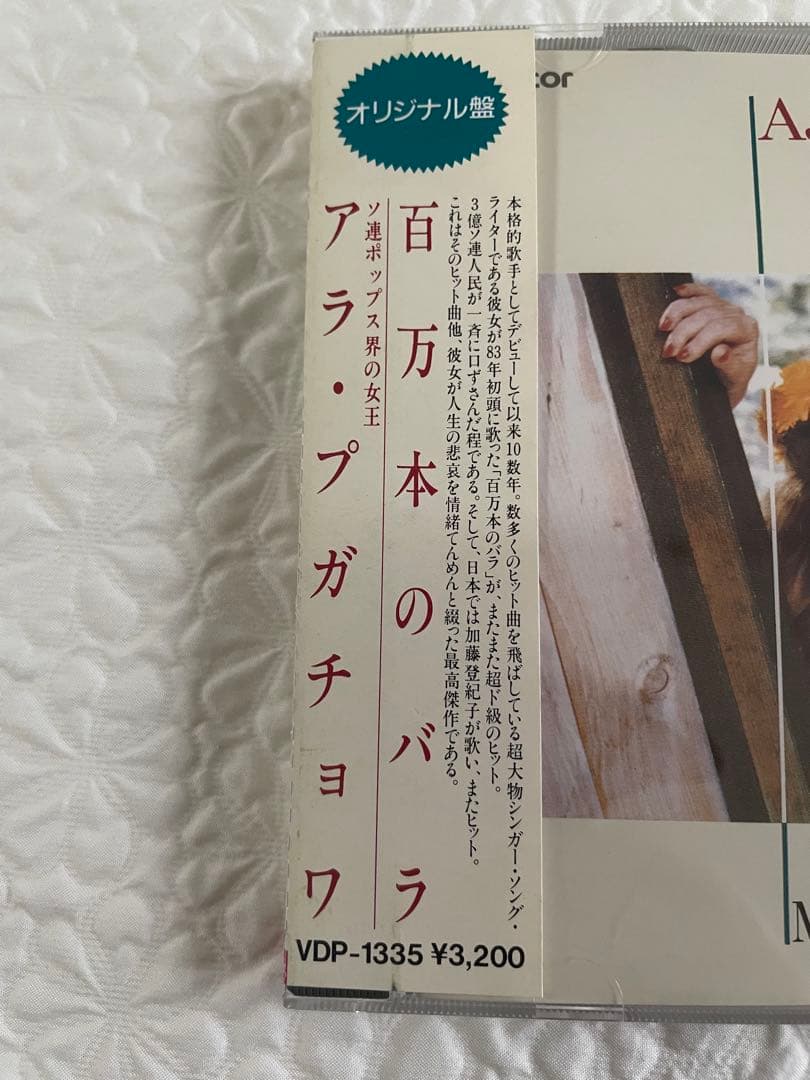 オリジナル盤
本格的歌手としてデビューして以来10数年。数多くのヒット曲を飛ばしている超大物シンガー・ソング・
ライターである彼女が83年初頭に歌った「百万本のバラ」が、またまた超ド級のヒット。
3億ソ連人民が一斉に口ずさんだ程である。そして、日本では加藤登紀子が歌い、またヒット。
これはそのヒット曲他、彼女が人生の悲哀を情緒てんめんと綴った最高傑作である。
百万本のバラ
ソ連ポップス界の女王
アラ・プガチョワ
VDP-1335 ¥3,200